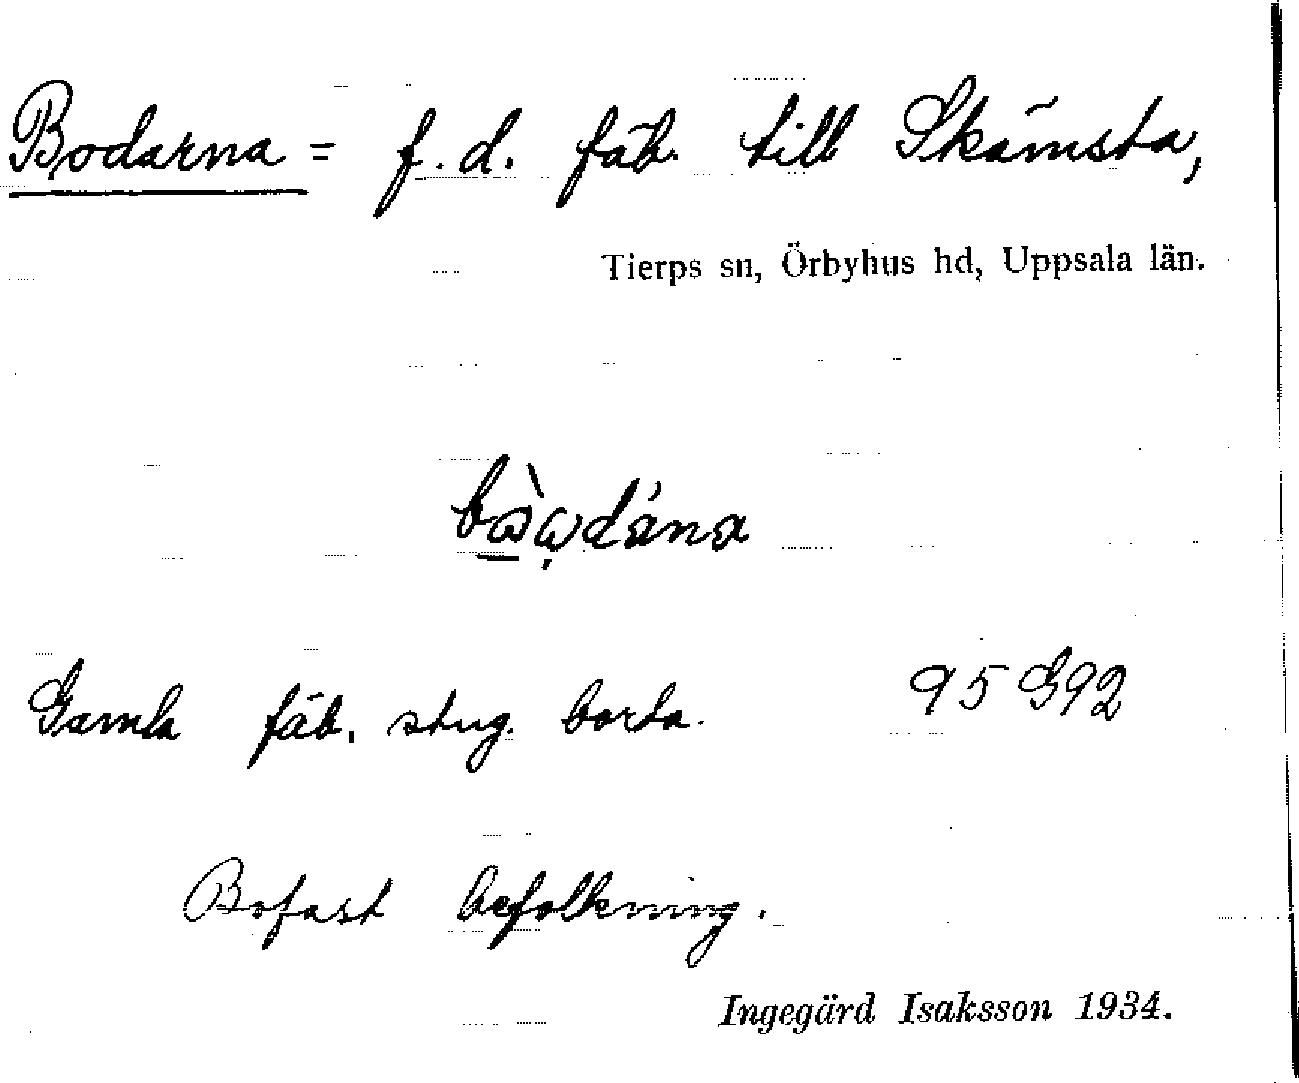 Bodarna = f.d. fäb. till Skämsta,
Tierps sn, Örbyhus hd, Uppsala län.
Gamla fäb. stug. borta. 95 G92
Bofast befolkning.
Ingegärd Isaksson 1934.